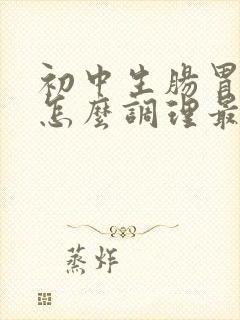 初中生腸胃
怎麼調理最
蒸炸